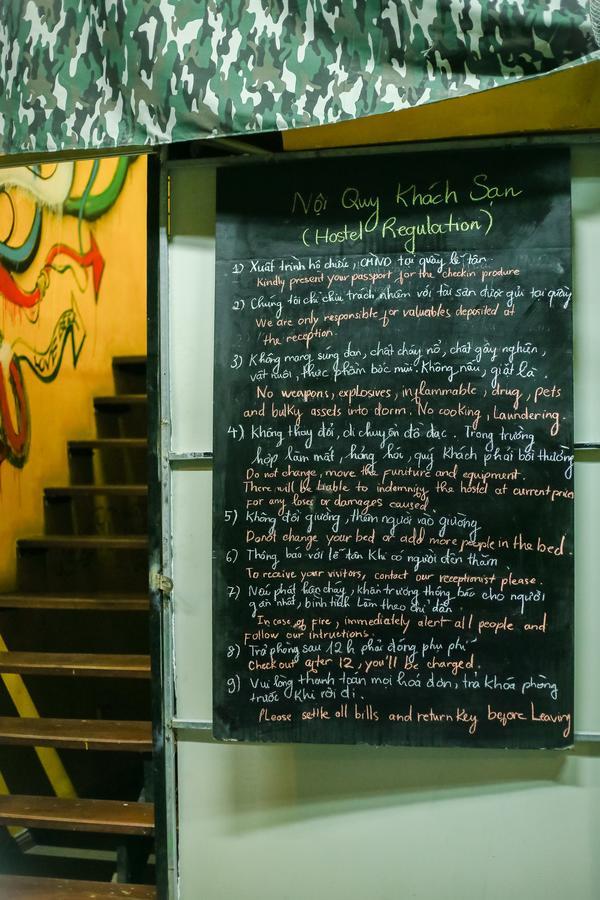 Nội Quy Khách Sạn
(Hostel Regulation)
1) Xuất trình hộ chiếu, CMND tại quầy lễ tân.
Kindly present your passport for the checkin produce
2) Chúng tôi chỉ chịu trách nhiệm với tài sản được gửi tại quầy
We are only responsible for valuables deposited at
the reception.
3) Không mang súng đạn, chất cháy nổ, chất gây nghiện,
vật nuôi, thực phẩm bốc mùi. Không nấu, giặt là.
No weapons, explosives, inflammable, drug, pets
and bulky assets into dorm. No cooking, Laundering.
4) Không thay đổi, di chuyển đồ đạc. Trong trường
hợp làm mất, hỏng hóc, quý Khách phải bồi thường
Do not change, move the funiture and equipment.
There will be liable to indemnify the hostel at current price
For any lose or damages caused
5) Không đổi giường, thêm người vào giường
Do not change your bed or add more people in the bed.
6) Thông báo với lễ tân Khi có người đến thăm
To receive your visitors, contact our receptionist please.
7) Nơi phát hỏa cháy, khẩn trương thông báo cho người
gần nhất, bình tĩnh Làm theo chỉ dẫn.
In case of Fire, immediately alert all people and
Follow our intructions.
8) Trả phòng sau 12h phải đóng phụ phí
Check out after 12, you'll be charged.
9) Vui lòng thanh toán mọi hoá đơn, trả khóa phòng
trước Khi rời đi.
Please settle all bills and return Key before Leaving
LOVE